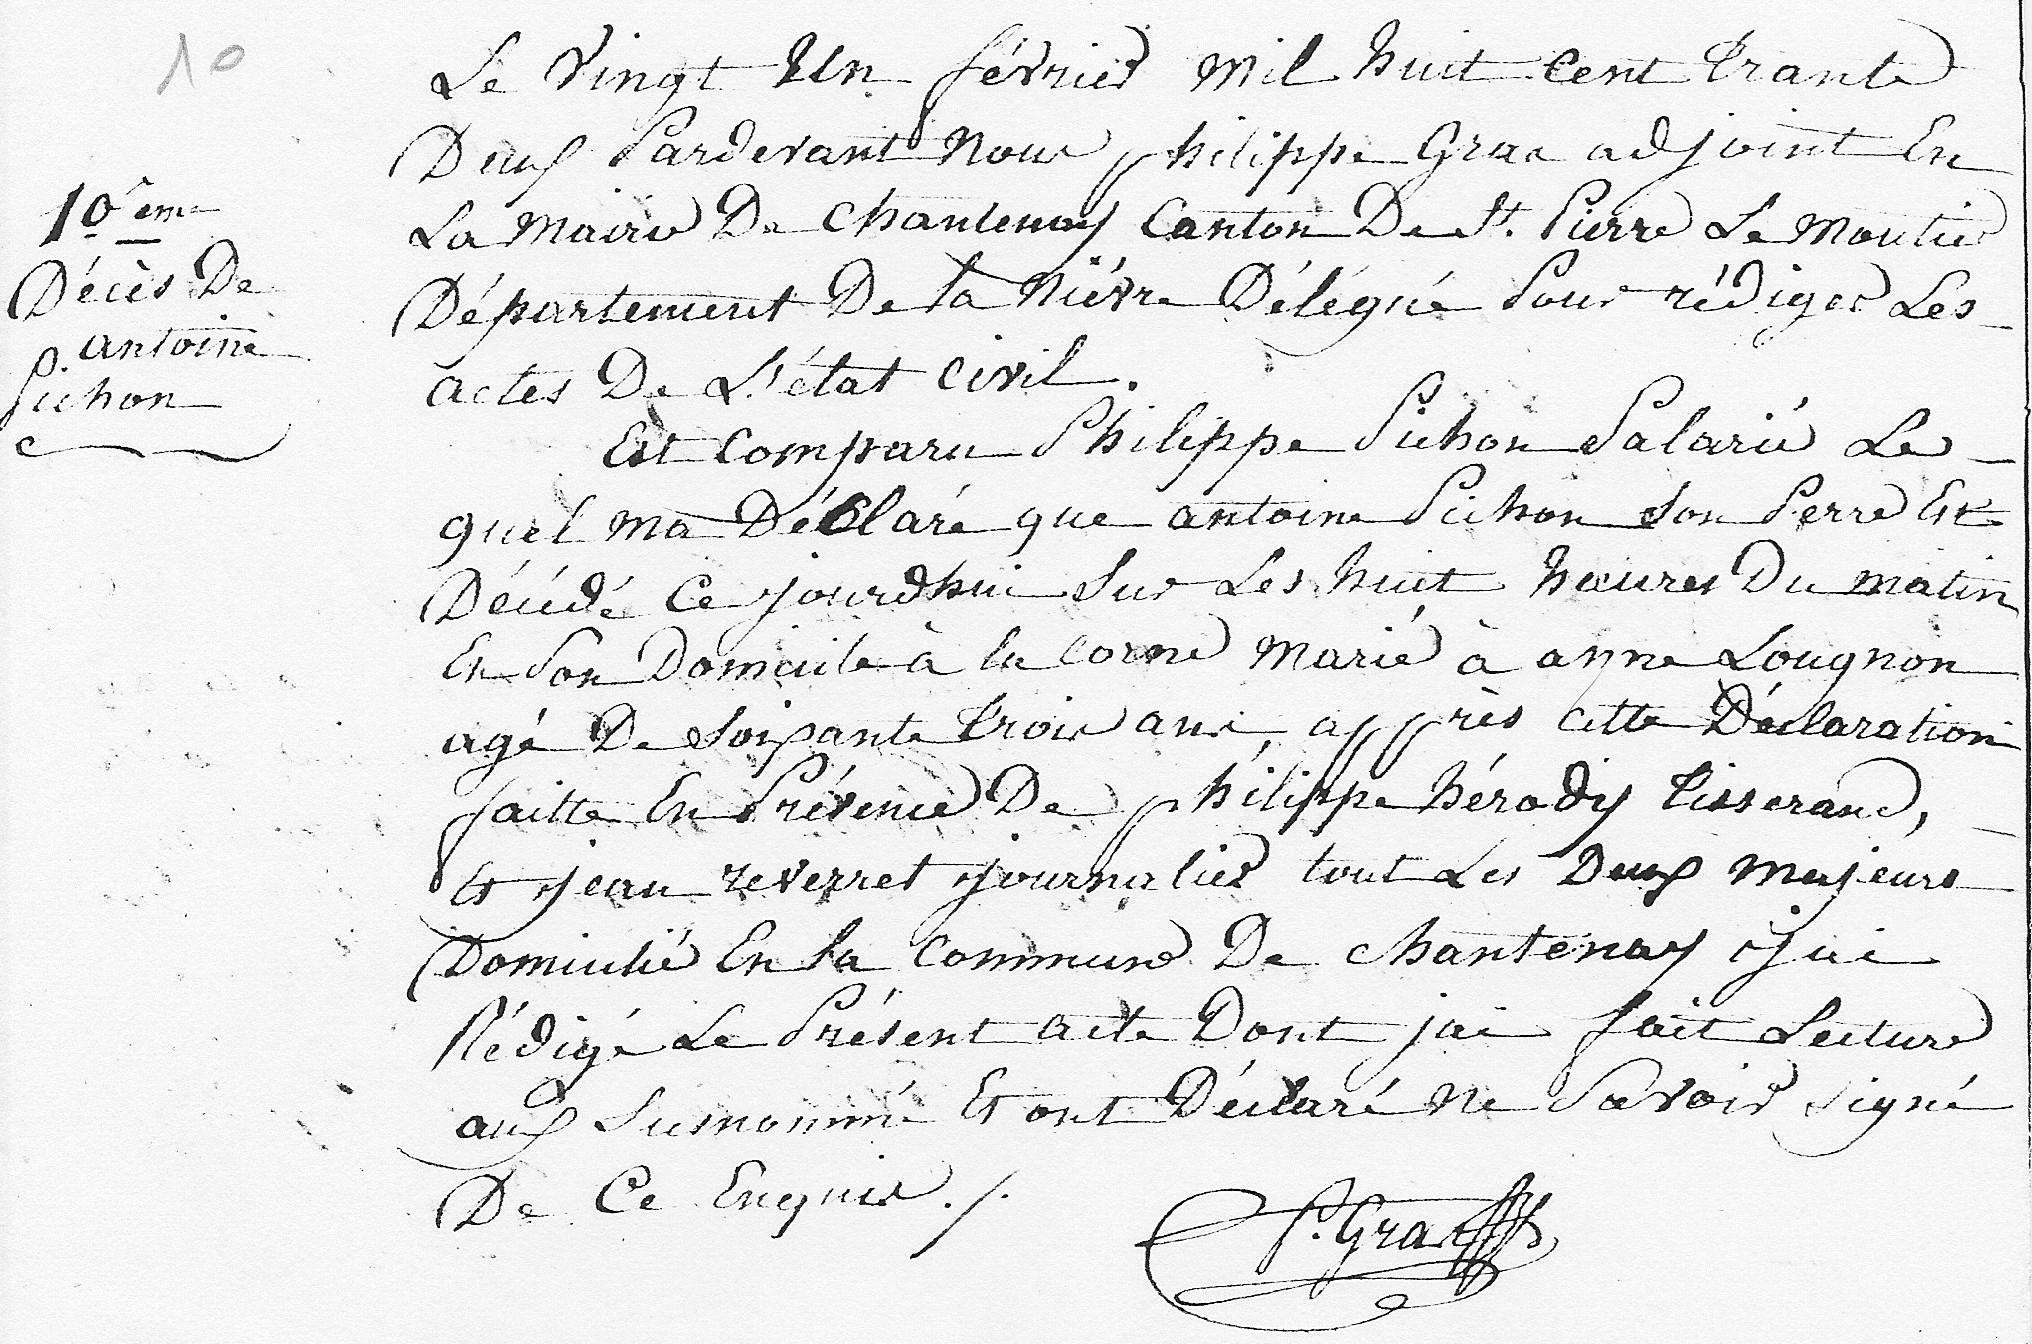 10
10ème
Décès De
antoine
Pichon
Le Vingt Un février mil huit cent trante
Deux Pardevant Nous philippe Gras adjoint En
La Mairie De Chantenay Canton De St. Pierre Le Moutier
Département De la Nièvre Délégué Pour rédiger Les
actes De L'état Civil.
Est Comparu Philippe Pichon Salarié Le
quel ma Déclaré que antoine Pichon Son Perre Est
Décédé Ce jourdhui Sur Les huit heures Du matin
En Son Domicile à la Corne marié à anne Lougnon
agé De Soixante trois ans, apprès cette Déclaration
faitte En Présence De philippe hérody tisserand,
Et jean reverret journalier tout Les Deux Majeurs
Domicilié En la Commune De Chantenay Jai
Rédigé Le Présent acte Dont jai fait Lecture
aux Susnommé Et ont Déclaré Ne Savoir Signé
De Ce Enquis ./.
P. Gras